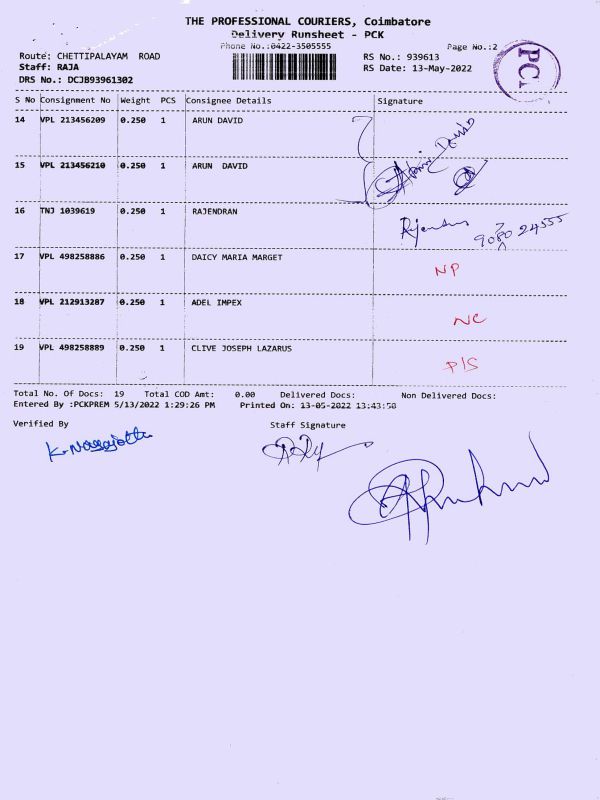 THE PROFESSIONAL COURIERS, Coimbatore
Delivery Runsheet - PCK
Phone No.:0422-3505555
Page No.:2
Route: CHETTIPALAYAM ROAD
RS No.: 939613
Staff: RAJA
RS Date: 13-May-2022
DRS No.: DCJB93961302
PCK
S No Consignment No Weight PCS Consignee Details Signature
14 VPL 213456209 0.250 1 ARUN DAVID
15 VPL 213456210 0.250 1 ARUN DAVID
16 TNJ 1039619 0.250 1 RAJENDRAN
17 VPL 498258886 0.250 1 DAICY MARIA MARGET NP
18 VPL 212913287 0.250 1 ADEL IMPEX NC
19 VPL 498258889 0.250 1 CLIVE JOSEPH LAZARUS P/S
Total No. Of Docs: 19 Total COD Amt: 0.00 Delivered Docs: Non Delivered Docs:
Entered By :PCKPREM 5/13/2022 1:29:26 PM Printed On: 13-05-2022 13:43:50
Verified By Staff Signature